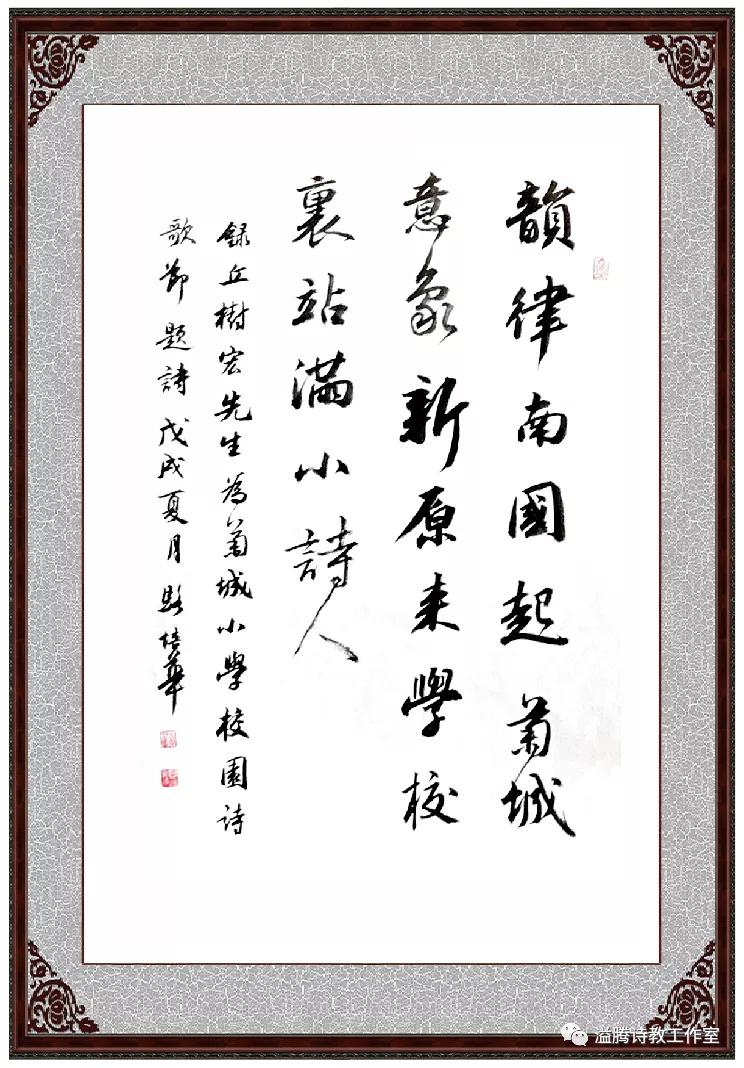 韻律南國起菊城
意象新原来學校
裏站滿小詩人
録丘樹宏先生為菊城小學校園诗
歌節題詩戊戌夏月培華
溢腾诗教工作室